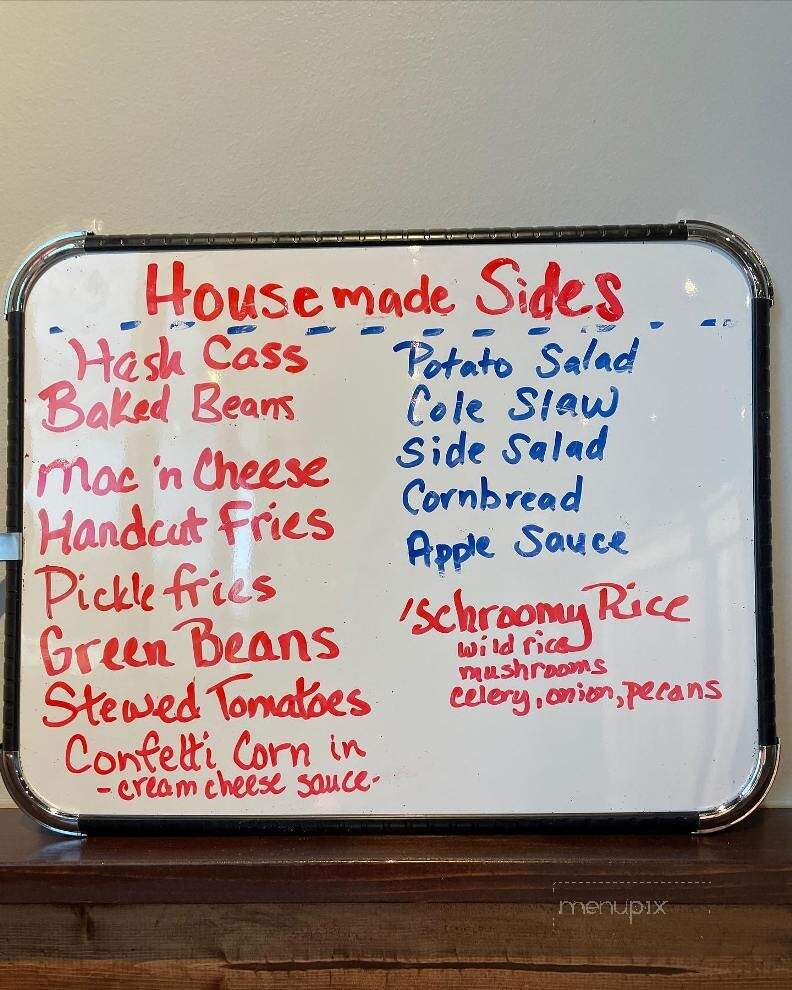 Housemade Sides
Hash Cass
Baked Beans
Mac 'n Cheese
Handcut Fries
Pickle fries
Green Beans
Stewed Tomatoes
Confetti Corn in
- cream cheese sauce -
Potato Salad
Cole Slaw
Side Salad
Cornbread
Apple Sauce
'Schroomy Rice
wild rice
mushrooms
celery, onion, pecans
menupix